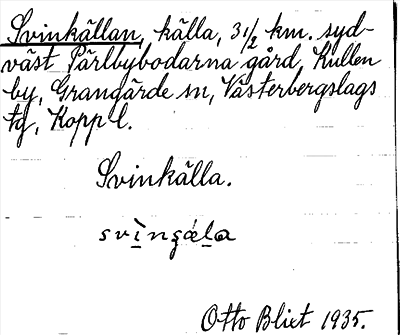 Svinkällan, källa, 3 1/2 km. syd-
väst Pärlbybodarna gård, Kullen
by, Grangärde sn, Västerbergslags
tg, Kopp l.
Svinkälla.
Otto Blixt 1935.